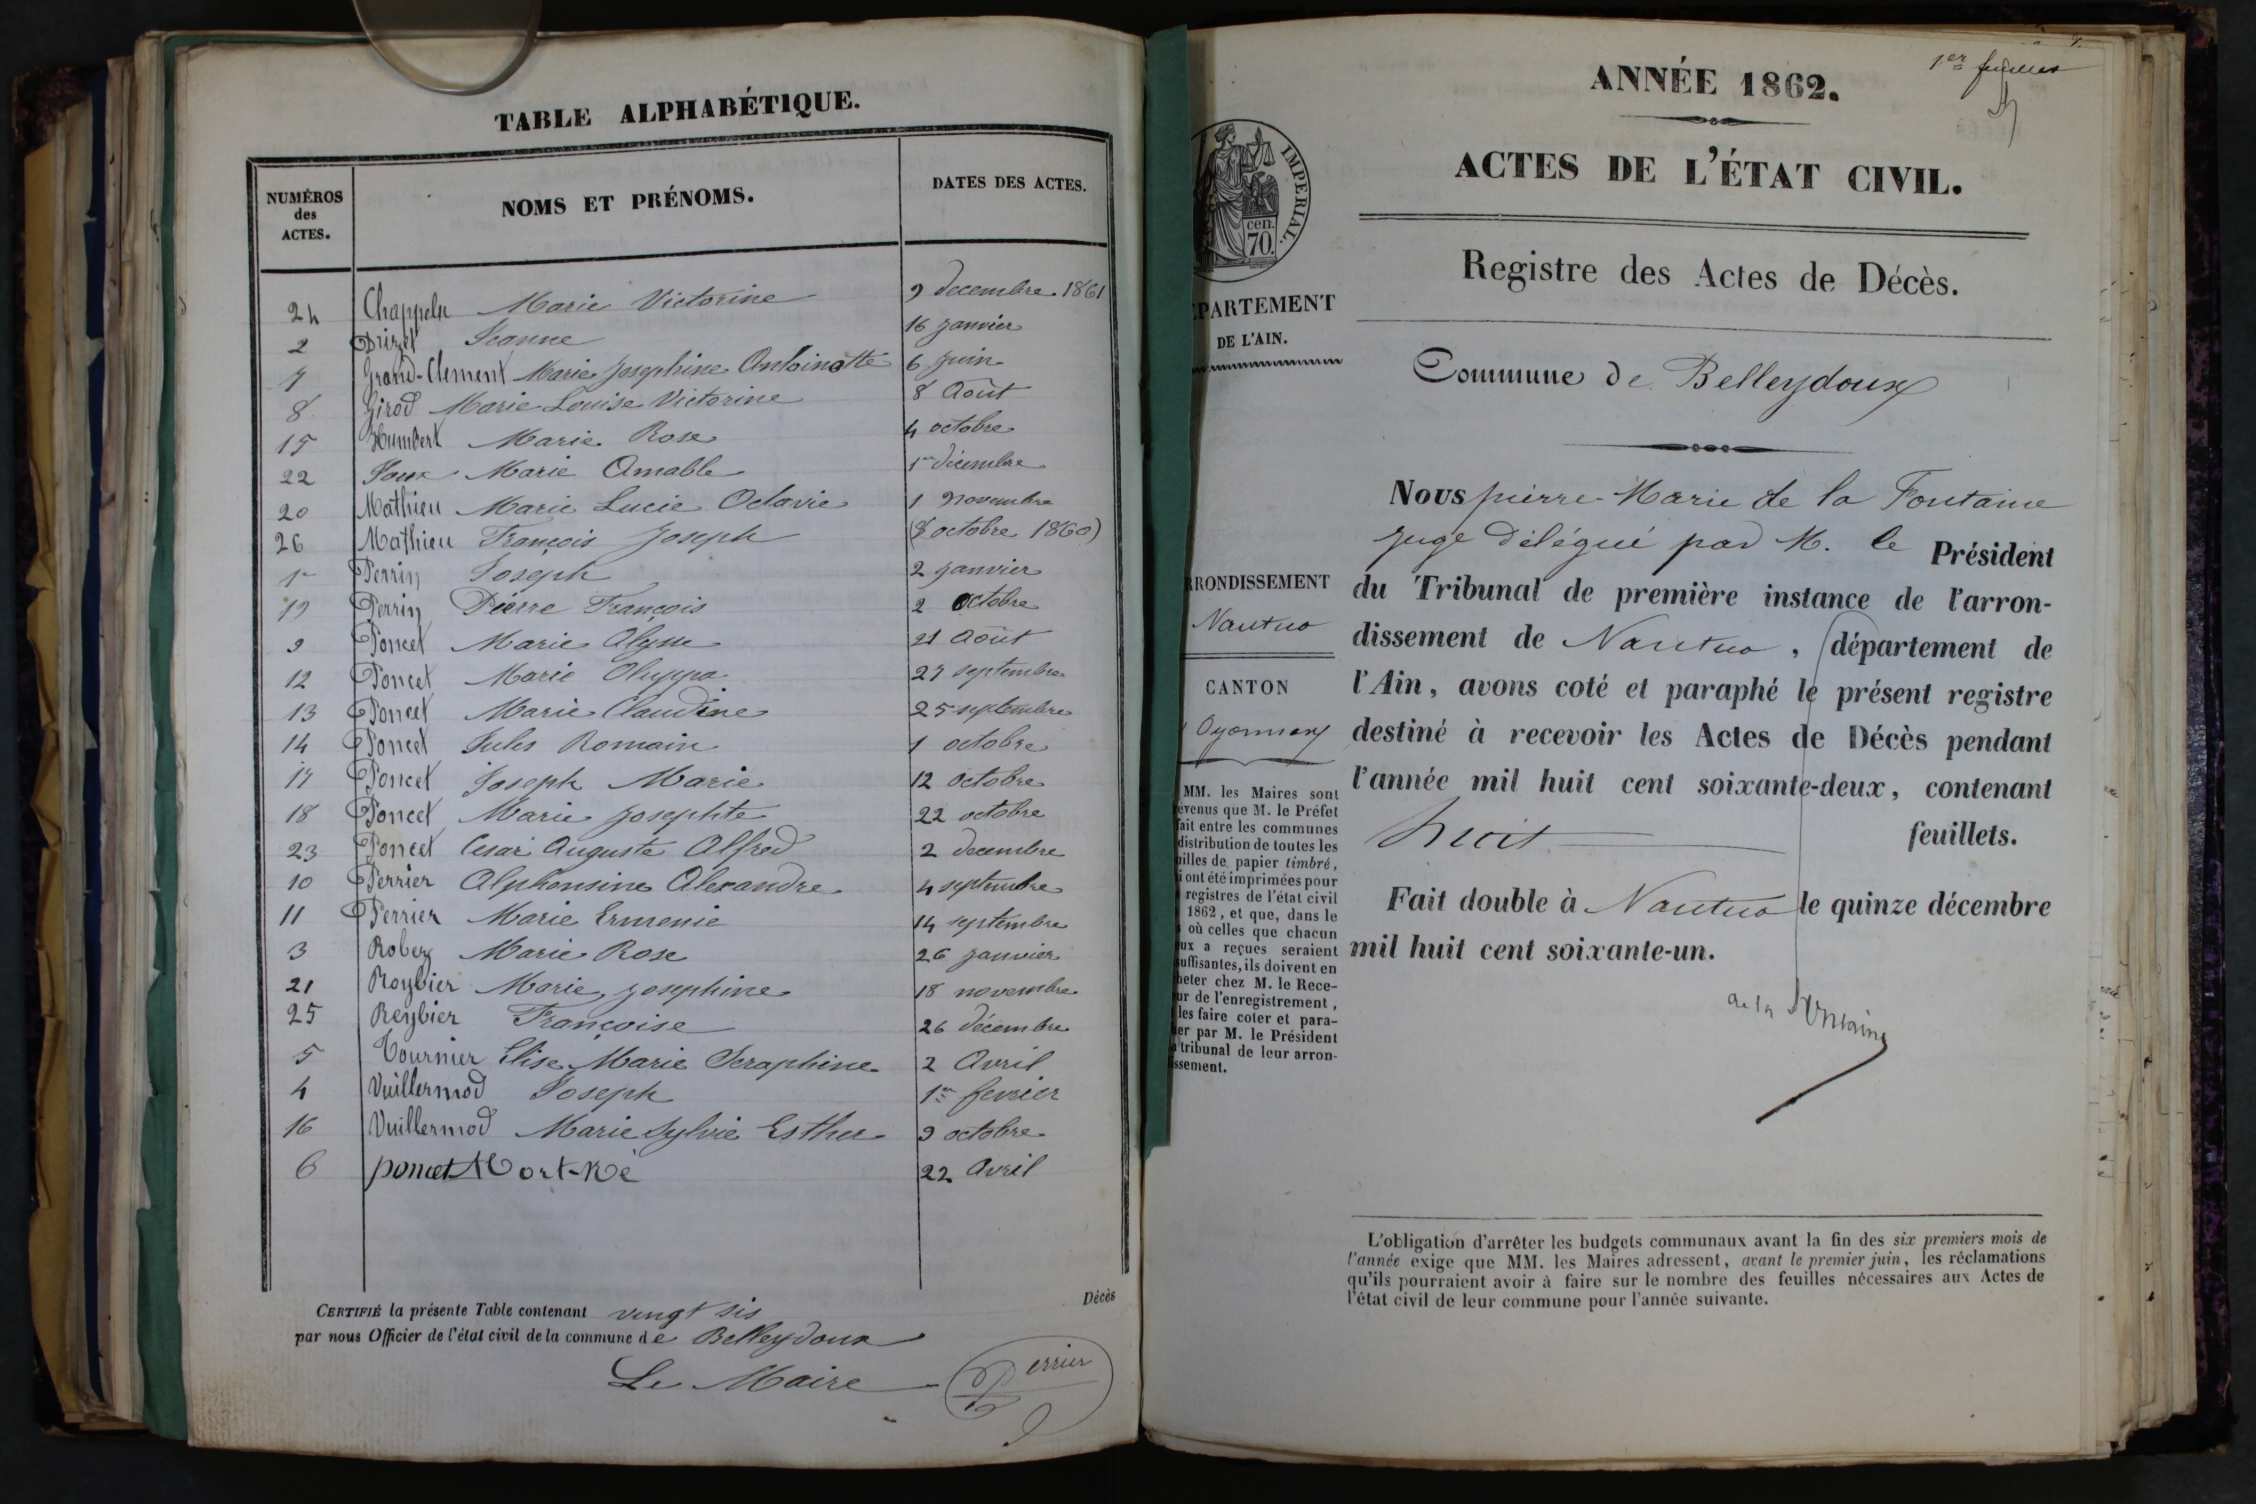 TABLE ALPHABÉTIQUE.
NUMÉROS des ACTES. NOMS ET PRÉNOMS. DATES DES ACTES.
24 Chappelu Marie Victorine 9 decembre 1861
2 Drizet Jeanne 16 janvier
7 Grand-Clement Marie Josephine Antoinette 6 juin
8 Girod Marie Louise Victorine 8 Août
15 Humbert Marie Rose 4 octobre
22 Joux Marie Amable 1er décembre
20 Mathieu Marie Lucie Octavie 1 novembre
26 Mathieu François Joseph (8 octobre 1860)
1 Perrin Joseph 2 janvier
19 Perrin Pierre François 2 octobre
9 Poncet Marie 21 Août
12 Poncet Marie Olyppa 27 septembre
13 Poncet Marie Claudine 25 septembre
14 Poncet Jules Romain 1 octobre
17 Poncet Joseph Marie 12 octobre
18 Poncet Marie Josephte 22 octobre
23 Poncet Cesar Auguste Alfred 2 decembre
10 Perrier Alphonsine Alexandre 4 septembre
11 Perrier Marie Ermenie 14 septembre
3 Robez Marie Rose 26 janvier
21 Reybier Marie Josephine 18 novembre
25 Reybier Françoise 26 décembre
5 Tournier Elise Marie Seraphine 2 Avril
4 Vuillermod Joseph 1er fevrier
16 Vuillermod Marie Sylvie Esther 9 octobre
6 poncet Mort-Né 22 Avril
CERTIFIÉ la présente Table contenant vingt sis Décès
par nous Officier de l'état civil de la commune de Belleydoux
Le Maire Perrier
1er feuillet
ANNÉE 1862.
ACTES DE L'ÉTAT CIVIL.
IMPERIAL.
cen.
70.
Registre des Actes de Décès.
PARTEMENT
DE L'AIN.
Commune de Belleydoux
RONDISSEMENT
Nantua
CANTON
Oyonnax
MM. les Maires sont
évenus que M. le Préfet
fait entre les communes
distribution de toutes les
uilles de papier timbré,
i ont été imprimées pour
registres de l'état civil
1862, et que, dans le
où celles que chacun
ux a reçues seraient
suffisantes, ils doivent en
heter chez M. le Rece-
ur de l'enregistrement,
les faire coter et para-
er par M. le Président
tribunal de leur arron-
ssement.
Nous pierre-Marie de la Fontaine
juge délégué par M. le Président
du Tribunal de première instance de l'arron-
dissement de Nantua, département de
l'Ain, avons coté et paraphé le présent registre
destiné à recevoir les Actes de Décès pendant
l'année mil huit cent soixante-deux, contenant
huit feuillets.
Fait double à Nantua le quinze décembre
mil huit cent soixante-un.
de la Fontaine
L'obligation d'arrêter les budgets communaux avant la fin des six premiers mois de
l'année exige que MM. les Maires adressent, avant le premier juin, les réclamations
qu'ils pourraient avoir à faire sur le nombre des feuilles nécessaires aux Actes de
l'état civil de leur commune pour l'année suivante.